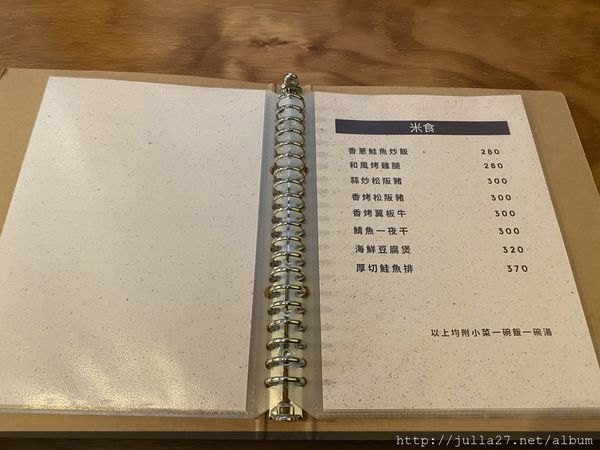 米食
香蔥鮭魚炒飯 280
和風烤雞腿 280
蒜炒松阪豬 300
香烤松阪豬 300
香烤翼板牛 300
鯖魚一夜干 300
海鮮豆腐煲 320
厚切鮭魚排 370
以上均附小菜一碗飯一碗湯
http://julla27.net/album